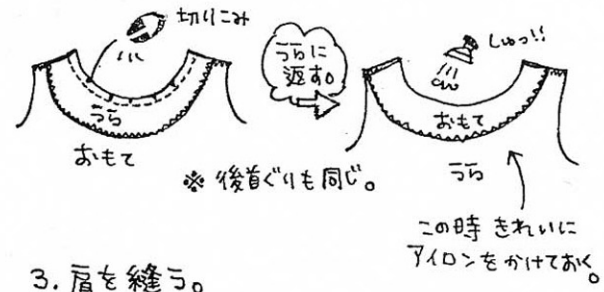 切りこみ
うらに
返す。
しゅっ!!
うら
おもて
おもて
うら
※ 後首ぐりも同じ。
この時 きれいに
アイロンをかけておく。
3. 肩を縫う。